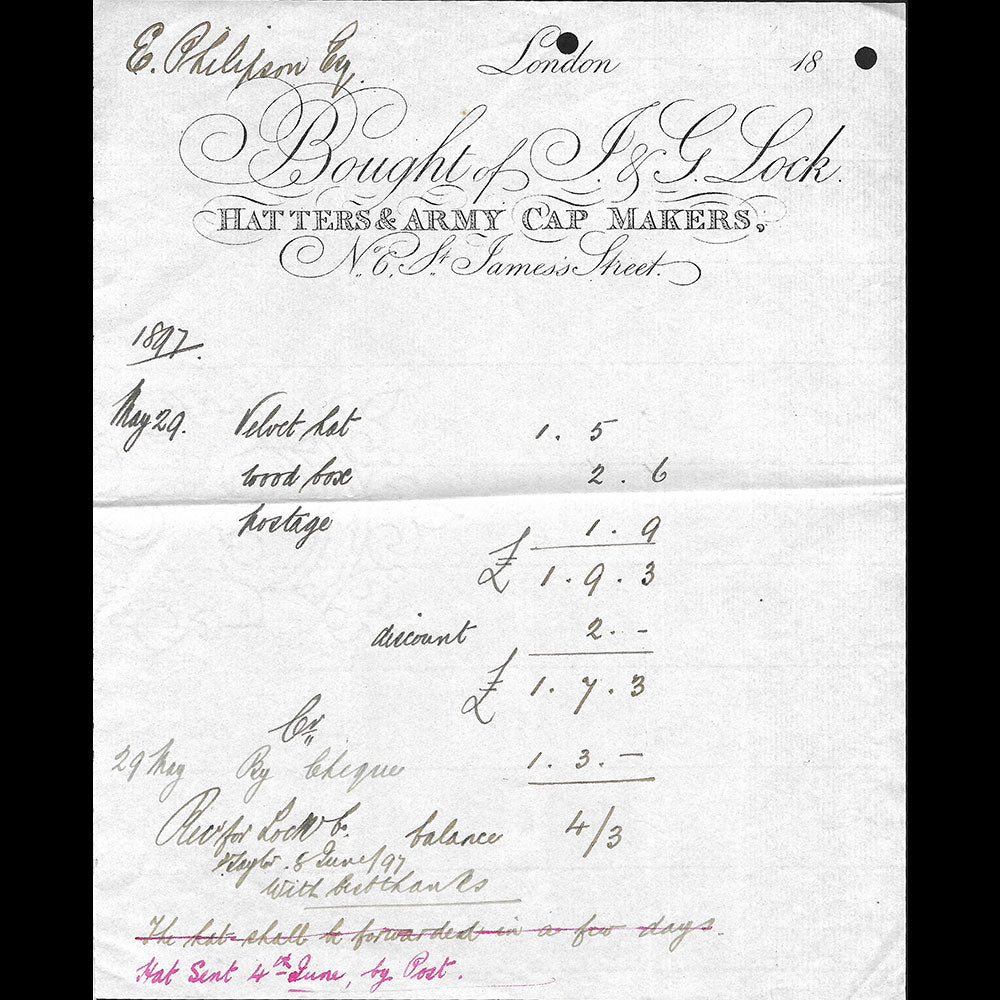 E. Philipson Esq.
London 18
Bought of J. & G. Lock.
HATTERS & ARMY CAP MAKERS,
No. 6. St. James's Street.
1897.
May 29. Velvet hat 1 . 5
wood box 2 . 6
postage 1 . 9
£ 1 . 9 . 3
discount 2 . -
£ 1 . 7 . 3
Cr
29 May By Cheque 1 . 3 . -
for Lock & Co balance 4/3
Taylor. 8 June/97
With best thanks
The hat shall be forwarded in a few days.
Hat Sent 4th June, by Post.